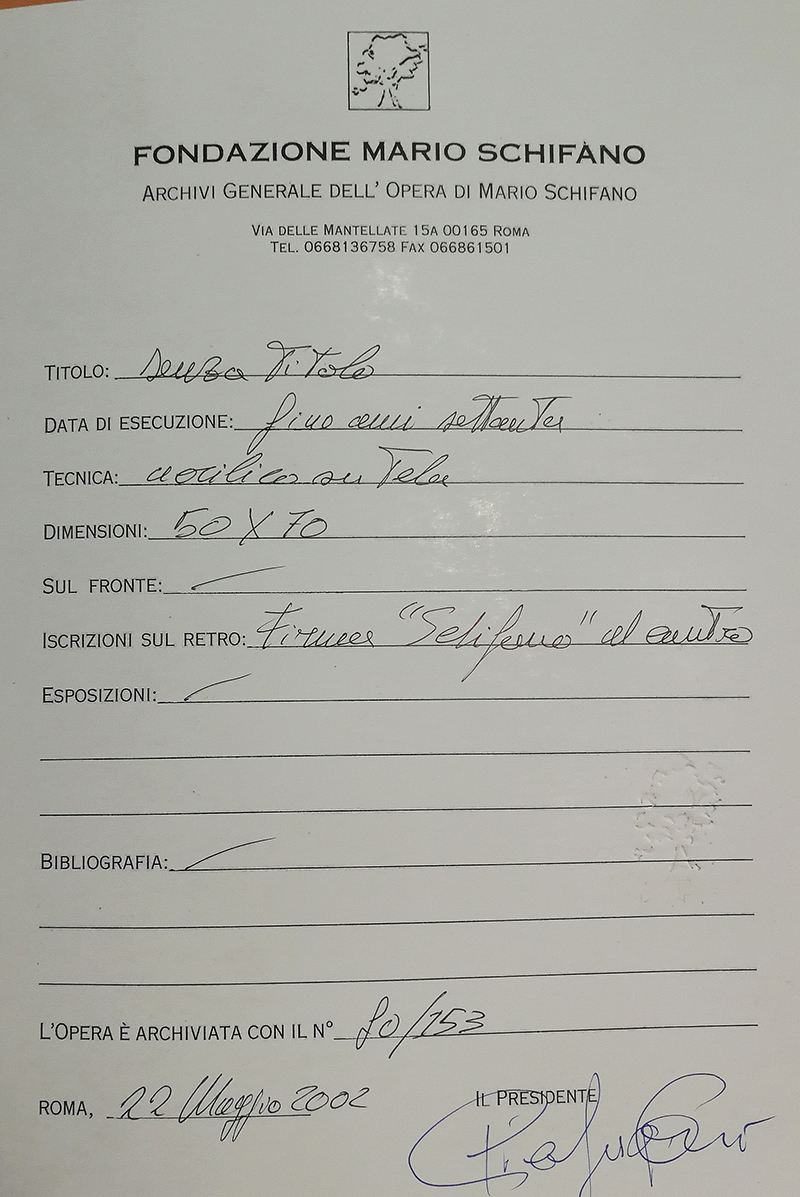 FONDAZIONE MARIO SCHIFANO
ARCHIVI GENERALE DELL' OPERA DI MARIO SCHIFANO
VIA DELLE MANTELLATE 15A 00165 ROMA
TEL. 0668136758 FAX 066861501
TITOLO: Senza Titolo
DATA DI ESECUZIONE: fine anni settanta
TECNICA: acrilico su Tela
DIMENSIONI: 50 X 70
SUL FRONTE:
ISCRIZIONI SUL RETRO: Firma "Schifano" al centro
ESPOSIZIONI:
BIBLIOGRAFIA:
L'OPERA È ARCHIVIATA CON IL N° /153
ROMA, 22 Maggio 2002
IL PRESIDENTE